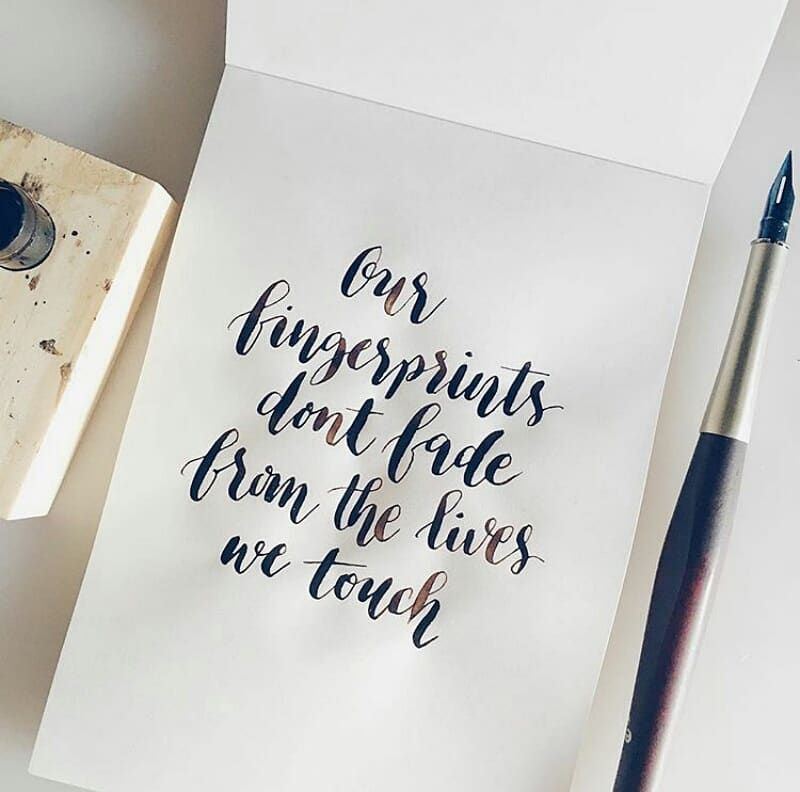 Our
fingerprints
dont fade
from the lives
we touch